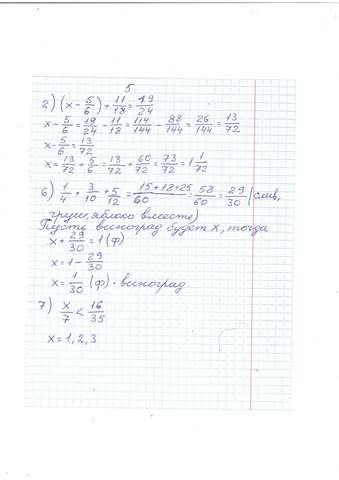 5
2) (x - 5/6) + 11/18 = 19/24
x - 5/6 = 19/24 - 11/18 = 114/144 - 88/144 = 26/144 = 13/72
x - 5/6 = 13/72
x = 13/72 + 5/6 = 13/72 + 60/72 = 73/72 = 1 1/72
6) 1/4 + 3/10 + 5/12 = 15+18+25/60 = 58/60 = 29/30 (слив,
груш, яблоко вместе)
Пусть виноград будет x, тогда
x + 29/30 = 1 (ф)
x = 1 - 29/30
x = 1/30 (ф) - виноград
7) x/7 < 16/35
x = 1, 2, 3